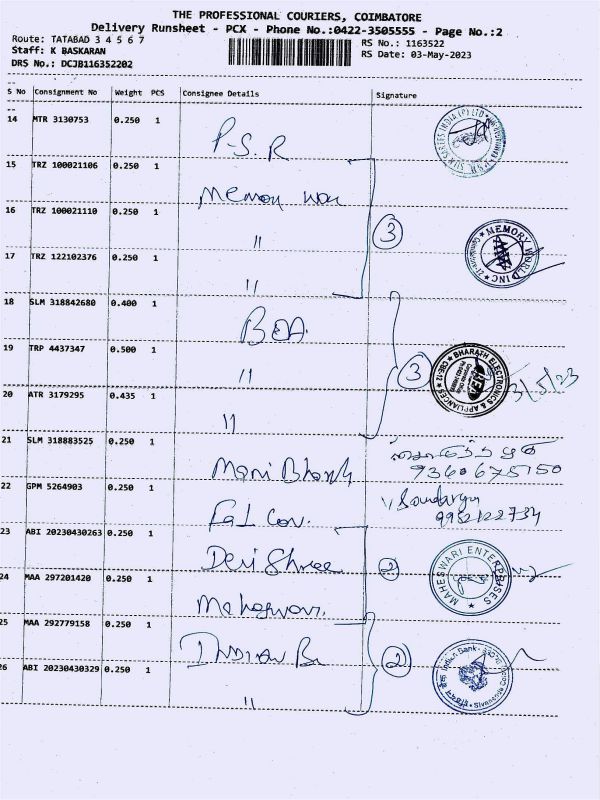 THE PROFESSIONAL COURIERS, COIMBATORE
Delivery Runsheet - PCX - Phone No.:0422-3505555 - Page No.:2
Route: TATABAD 3 4 5 6 7
RS No.: 1163522
Staff: K BASKARAN
RS Date: 03-May-2023
DRS No.: DCJB116352202
S No Consignment No Weight PCS Consignee Details Signature
14 MTR 3130753 0.250 1
P-S.R
15 TRZ 100021106 0.250 1
Memory
16 TRZ 100021110 0.250 1
"
3
MEMORY WORLD INC
17 TRZ 122102376 0.250 1
"
18 SLM 318842680 0.400 1
BEA
19 TRP 4437347 0.500 1
"
3
BHARATH ELECTRONICS & APPLIANCES
CBE-12
3/5/23
20 ATR 3179295 0.435 1
"
21 SLM 318883525 0.250 1
Mani Bharath
9360675150
22 GPM 5264903 0.250 1
Fal Con.
Soundarya
9952122734
23 ABI 20230430263 0.250 1
Devi Shree
2
MAHESWARI ENTERPRISES
24 MAA 297201420 0.250 1
Maheswari
25 MAA 292779158 0.250 1
INDIAN B
2
Indian Bank
26 ABI 20230430329 0.250 1
"